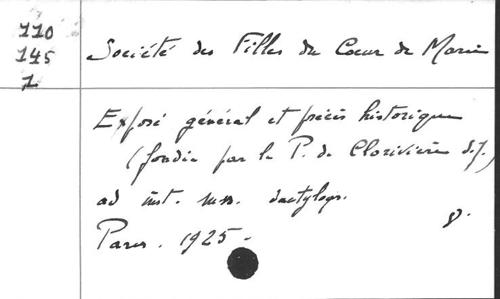 110
145
1
Société des Filles du Coeur de Marie
Exposé général et précis historique
(fondée par le P. de Clorivière S.J.)
ad inst. mss. dactylogr.
8.
Paris. 1925.